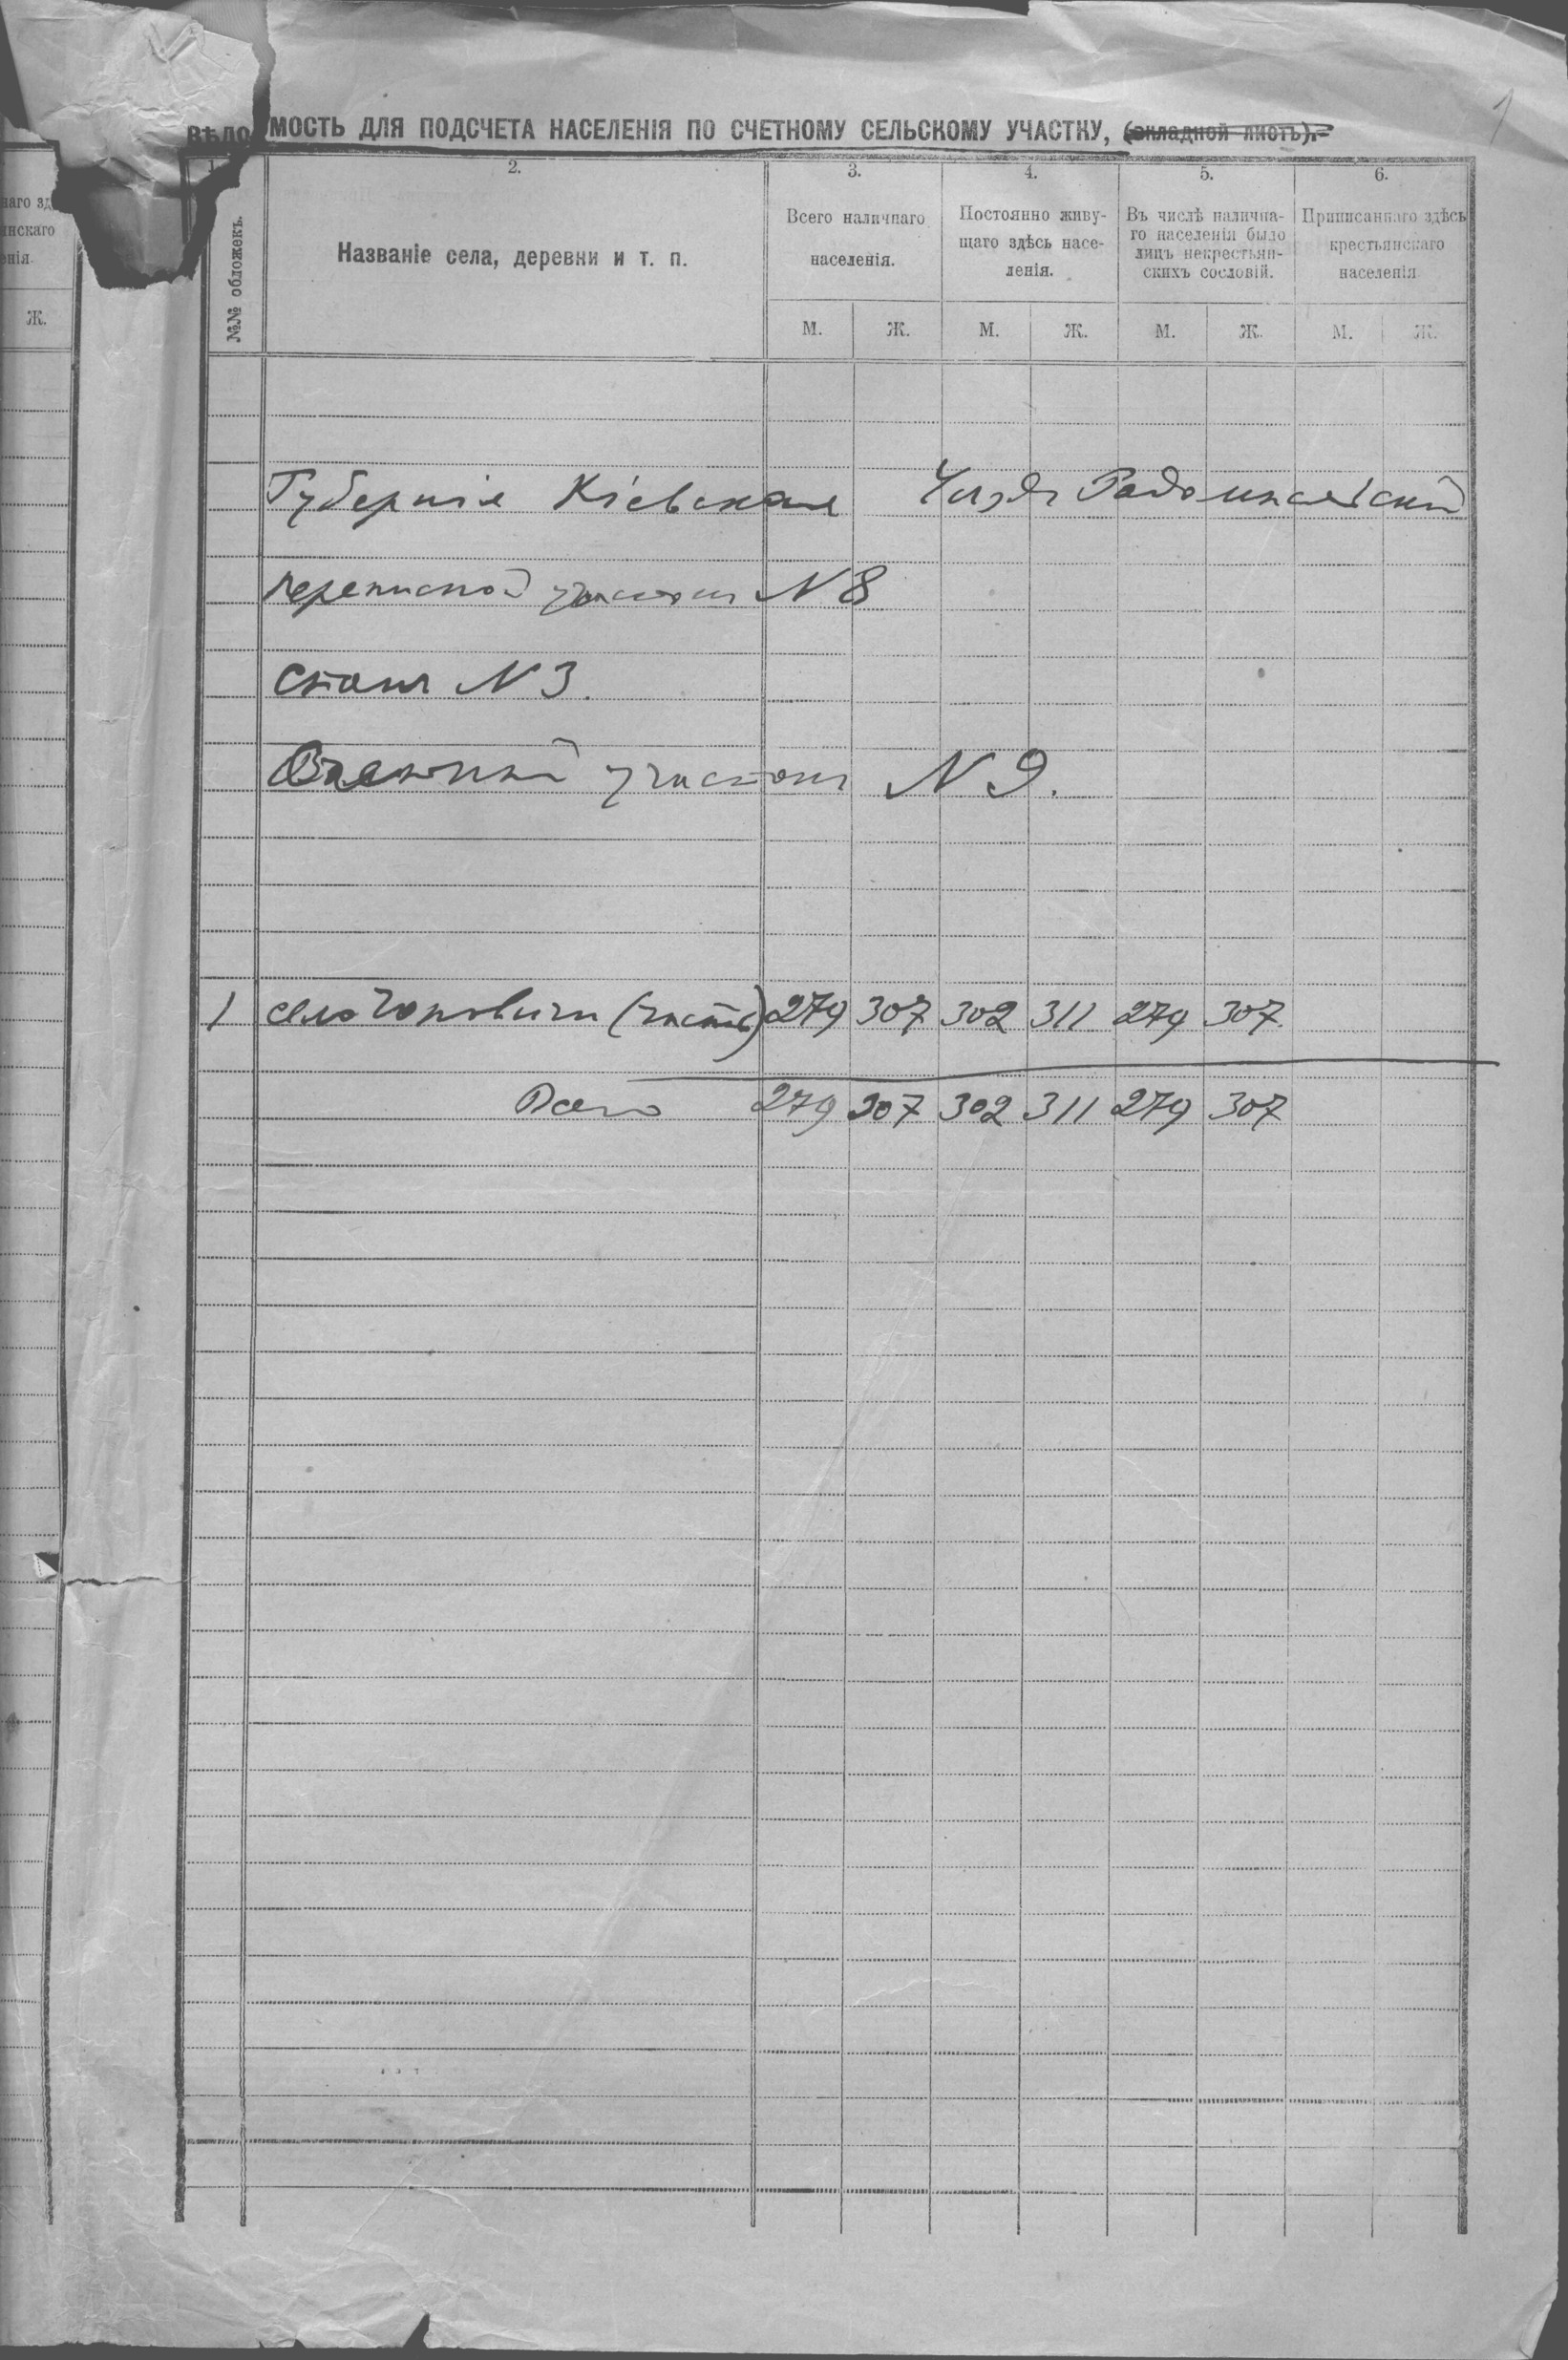 1
ВѢДОМОСТЬ ДЛЯ ПОДСЧЕТА НАСЕЛЕНІЯ ПО СЧЕТНОМУ СЕЛЬСКОМУ УЧАСТКУ, (окладной листъ).
1. 2. 3. 4. 5. 6.
№№ обложекъ.
Названіе села, деревни и т. п.
Всего наличнаго
населенія.
Постоянно живу-
щаго здѣсь насе-
ленія.
Въ числѣ налична-
го населенія было
лицъ некрестьян-
скихъ сословій.
Приписаннаго здѣсь
крестьянскаго
населенія
М. Ж. М. Ж. М. Ж. М. Ж.
Губернія Кіевская Уѣздъ Радомысльскій
переписной участокъ N 8
Станъ N 3.
Счетный участокъ N 9.
1 село Чоповичи (часть) 279 307 302 311 279 307
Всего 279 307 302 311 279 307
наго зд
янскаго
енія
Ж.